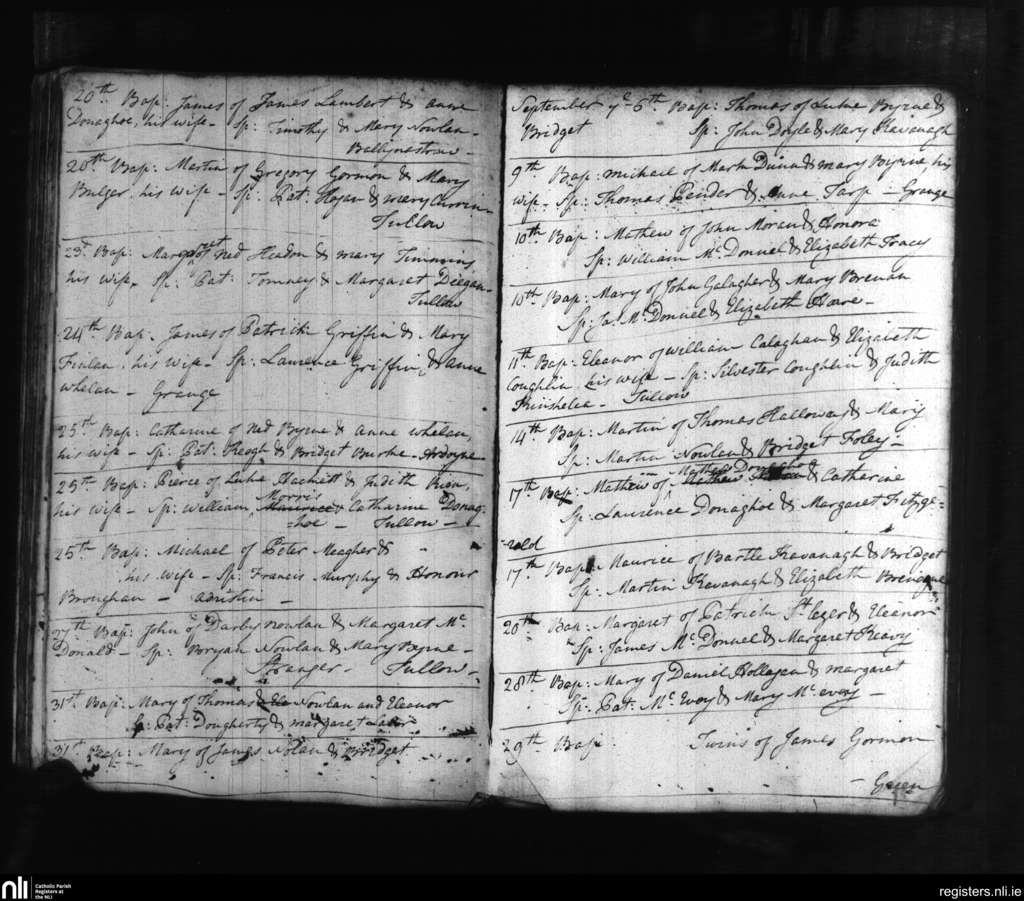 20th Bap: James of James Lambert & anne
Donaghoe, his wife - Sp: Timothy & Mary Nowlan -
Ballynastraw -
20th Bap: Martin of Gregory Gormon & Mary
Bulger, his wife - Sp: Pat: Hogan & mary Curren -
Tullow
23d Bap: Margaret of Ned Headon & mary Timmins
his wife. Sp: Pat: Tomney & Margaret Deegan -
Tullow
24th Bap. James of Patrick Griffin & Mary
Finlan, his wife - Sp: Laurence Griffin, & anne
whelan - Grange
25th Bap: Catharine of Ned Byrne & anne whelan,
his wife - Sp: Pat: Keogh & Bridget Burke - Ardoyne
25th Bap: Pierce of Luke Hackett & Judith
his wife - Sp: William Morris Maurice & Catharine Donag-
=hoe - Tullow -
25th Bap: Michael of Peter Meagher &
his wife - Sp: Francis Murphy & Honour
Broughan - adristin -
27th Bap: John of Darby nowlan & Margaret Mc
Donald - Sp: Bryan Nowlan & Mary Byrne -
Stranger - Tullow -
31st Bap: Mary of Thomas Nowlan and Eleanor
Sp: Pat: Dougherty & margaret
31st Bap: Mary of James Nolan & Bridget
September ye 6th Bap: Thomas of Luke Byrne &
Bridget Sp: John Doyle & Mary Kavanagh
9th Bap: michael of Mark Dunn & mary Byrne, his
wife - Sp: Thomas Pender & Anne Tarp - Grange
10th Bap: Mathew of John Moran & Honora
Sp: William Mc Donnel & Elizabeth Tracy
10th Bap: Mary of John Galagher & Mary Brenan
Sp: Ja: Mc Donnel & Elizabeth Hoare -
11th Bap: Eleanor of William Calaghan & Elizabeth
Coughlin, his wife - Sp: Silvester Coughlin & Judith
Kinshelea - Tullow
14th Bap: Martin of Thomas Halloway & Mary
Sp: Martin Nowlan & Bridget Foley -
17th Bap: Mathew of Mathew & Catharine
Sp: Laurence Donaghoe & Margaret Fitzge=
-rald
17th Bap: Maurice of Bartle Kavanagh & Bridget
Sp: Martin Kavanagh & Elizabeth
20th Bap: Margaret of Patrick St Leger & Eleanor
Sp: James Mc Donnel & Margaret Reavy
28th Bap: Mary of Daniel Hollagen & margaret
Sp: Pat: Mc Evoy & Mary Mc evoy -
29th Bap: Twins of James Gormon
- Green
nli
Catholic Parish
Registers at
the NLI
registers.nli.ie